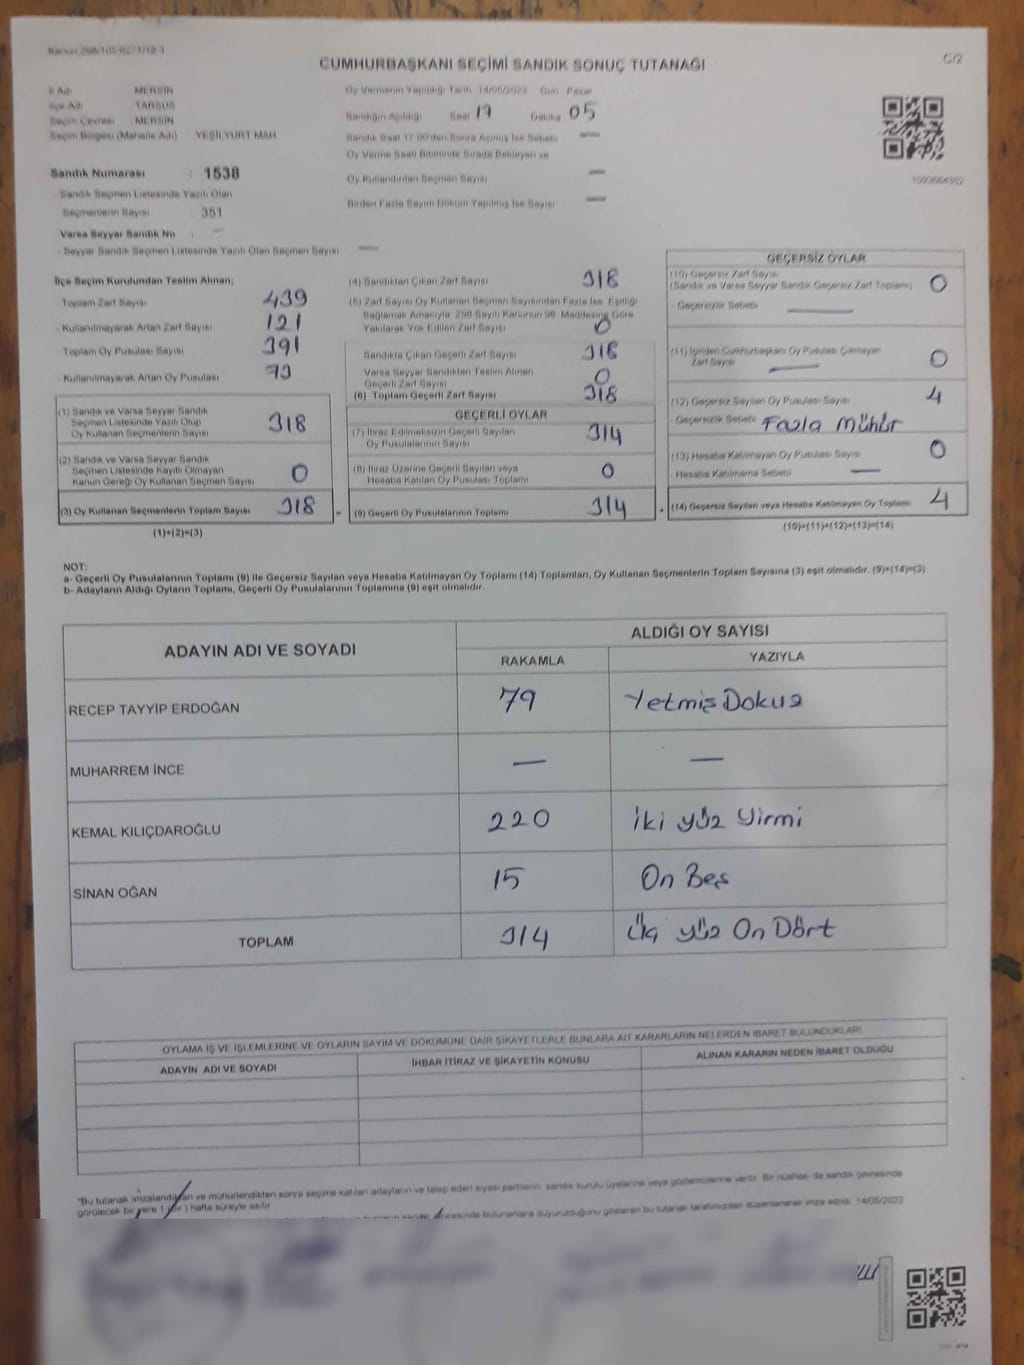 Kanun 298/105 6271/18-1
C/2
CUMHURBAŞKANI SEÇİMİ SANDIK SONUÇ TUTANAĞI
İl Adı MERSİN
İlçe Adı TARSUS
Seçim Çevresi : MERSİN
Seçim Bölgesi (Mahalle Adı) YEŞİLYURT MAH
Sandık Numarası : 1538
Sandık Seçmen Listesinde Yazılı Olan
Seçmenlerin Sayısı 351
Varsa Seyyar Sandık No : —
- Seyyar Sandık Seçmen Listesinde Yazılı Olan Seçmen Sayısı —
Oy Vermenin Yapıldığı Tarih 14/05/2023 Gün Pazar
Sandığın Açıldığı Saat 17 Dakika 05
Sandık Saat 17:00'den Sonra Açılmış İse Sebebi —
Oy Verme Saati Bitiminde Sırada Bekleyen ve
Oy Kullandırılan Seçmen Sayısı —
Birden Fazla Sayım Döküm Yapılmış İse Sayısı —
1093664352
İlçe Seçim Kurulundan Teslim Alınan;
- Toplam Zarf Sayısı 439
- Kullanılmayarak Artan Zarf Sayısı 121
- Toplam Oy Pusulası Sayısı 391
- Kullanılmayarak Artan Oy Pusulası 73
(1) Sandık ve Varsa Seyyar Sandık
Seçmen Listesinde Yazılı Olup
Oy Kullanan Seçmenlerin Sayısı 318
(2) Sandık ve Varsa Seyyar Sandık
Seçmen Listesinde Kayıtlı Olmayan
Kanun Gereği Oy Kullanan Seçmen Sayısı 0
(3) Oy Kullanan Seçmenlerin Toplam Sayısı 318
(1)+(2)=(3)
(4) Sandıktan Çıkan Zarf Sayısı 318
(5) Zarf Sayısı Oy Kullanan Seçmen Sayısından Fazla İse, Eşitliği
Sağlamak Amacıyla, 298 Sayılı Kanunun 98. Maddesine Göre
Yakılarak Yok Edilen Zarf Sayısı 0
Sandıkta Çıkan Geçerli Zarf Sayısı 318
Varsa Seyyar Sandıktan Teslim Alınan
Geçerli Zarf Sayısı 0
(6) Toplam Geçerli Zarf Sayısı 318
GEÇERLİ OYLAR
(7) İtiraz Edilmeksizin Geçerli Sayılan
Oy Pusulalarının Sayısı 314
(8) İtiraz Üzerine Geçerli Sayılan veya
Hesaba Katılan Oy Pusulası Toplamı 0
= (9) Geçerli Oy Pusulalarının Toplamı 314
GEÇERSİZ OYLAR
(10) Geçersiz Zarf Sayısı
(Sandık ve Varsa Seyyar Sandık Geçersiz Zarf Toplamı) 0
- Geçersizlik Sebebi —
(11) İçinden Cumhurbaşkanı Oy Pusulası Çıkmayan
Zarf Sayısı — 0
(12) Geçersiz Sayılan Oy Pusulası Sayısı 4
- Geçersizlik Sebebi Fazla Mühür
(13) Hesaba Katılmayan Oy Pusulası Sayısı 0
- Hesaba Katılmama Sebebi —
+ (14) Geçersiz Sayılan veya Hesaba Katılmayan Oy Toplamı 4
(10)+(11)+(12)+(13)=(14)
NOT:
a- Geçerli Oy Pusulalarının Toplamı (9) ile Geçersiz Sayılan veya Hesaba Katılmayan Oy Toplamı (14) Toplamları, Oy Kullanan Seçmenlerin Toplam Sayısına (3) eşit olmalıdır. (9)+(14)=(3)
b- Adayların Aldığı Oyların Toplamı, Geçerli Oy Pusulalarının Toplamına (9) eşit olmalıdır.
ADAYIN ADI VE SOYADI
ALDIĞI OY SAYISI
RAKAMLA YAZIYLA
RECEP TAYYİP ERDOĞAN 79 Yetmiş Dokuz
MUHARREM İNCE — —
KEMAL KILIÇDAROĞLU 220 İki yüz Yirmi
SİNAN OĞAN 15 On Beş
TOPLAM 314 Üç yüz On Dört
OYLAMA İŞ VE İŞLEMLERİNE VE OYLARIN SAYIM VE DÖKÜMÜNE DAİR ŞİKAYETLERLE BUNLARA AİT KARARLARIN NELERDEN İBARET BULUNDUKLARI
ADAYIN ADI VE SOYADI İHBAR İTİRAZ VE ŞİKAYETİN KONUSU ALINAN KARARIN NEDEN İBARET OLDUĞU
*Bu tutanak imzalandıktan ve mühürlendikten sonra seçime katılan adayların ve talep eden siyasi partilerin sandık kurulu üyelerine veya gözlemcilerine verilir. Bir nüshası da sandık çevresinde
görülecek bir yere 1 (bir ) hafta süreyle asılır
sandık çevresinde bulunanlara duyurulduğunu gösteren bu tutanak tarafımızdan düzenlenerek imza edildi. 14/05/2023